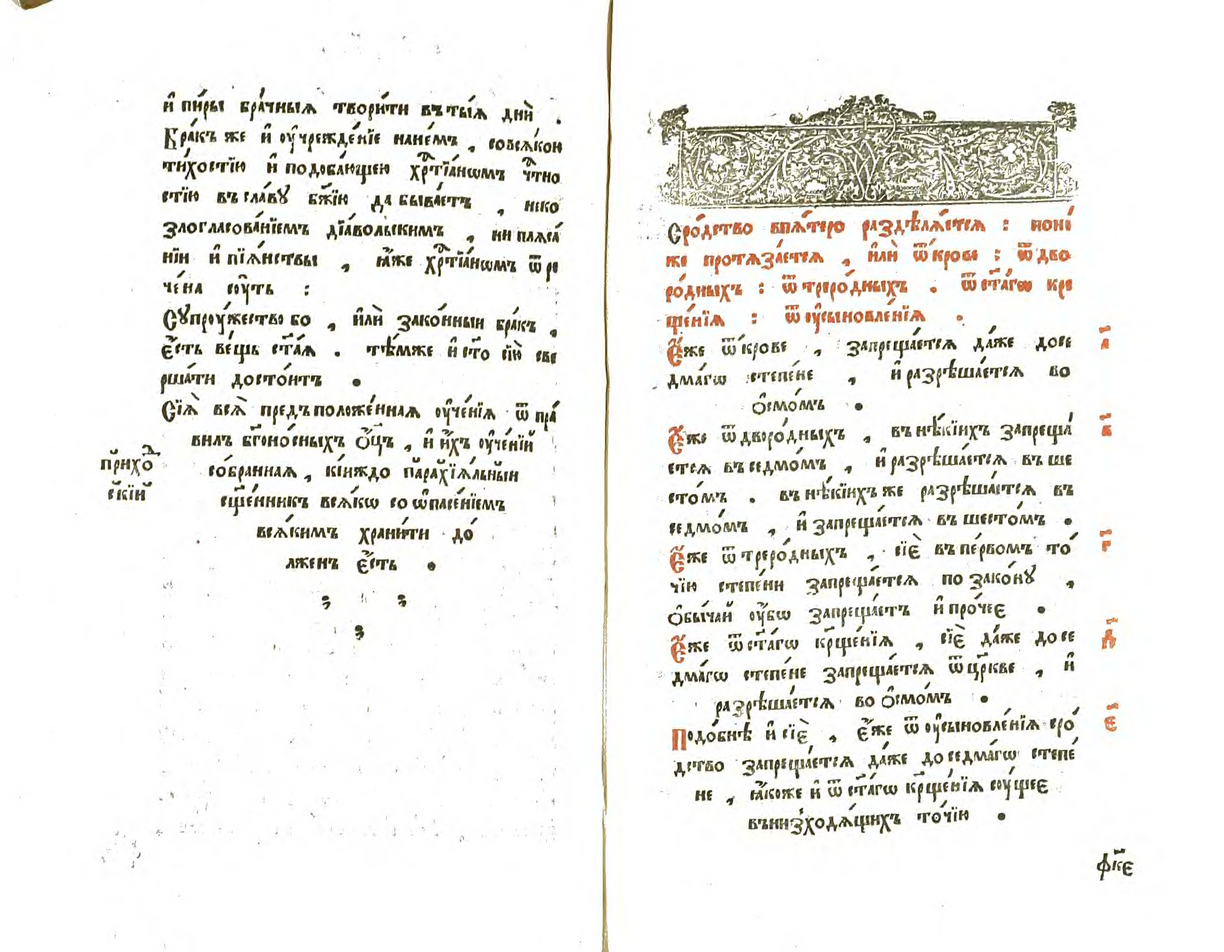 и҆ пи́ры бра́чныѧ твори́ти въ ты́ѧ дни̑ .
Бра́къ же и҆ ᲂу҆чрежде́нїе на не́мъ , со всѧ́кою
ти́хостїю и҆ подоба́ющею хрⷭ҇тїа́нѡмъ чⷭ҇тно
стїю въ сла́вꙋ бж҃їю да быва́етъ , не ко
злогласова́нїемъ дїа́вольскимъ , ни плѧса́
нїи и҆ пїѧ́нствы , ꙗ҆́же хрⷭ҇тїа́нѡмъ ѿ ре
че́на сꙋ́ть :
Сꙋпрꙋ́жество бо , и҆лѝ зако́нныи бра́къ ,
є҆́сть ве́щь ст҃а́ѧ . тѣ́мже и҆ ст҃о сїю̀ све
рша́ти досто́итъ .
Сїѧ̑ всѧ̑ предъ положе́ннаѧ ᲂу҆че́нїѧ ѿ пра́
вилъ бг҃оно́сныхъ ѻ҆ц҃ъ , и҆ и҆́хъ ᲂу҆че́нїй
со́браннаѧ , кі́иждо парахїѧ́льныи
прихо́д
скїи
сщ҃е́нникъ всѧ́кѡ со ѡ҆пасе́нїемъ
всѧ́кимъ храни́ти до́
лженъ є҆́сть .
Сро́дство впѧ́теро раздѣлѧ́етсѧ : поне́
же протѧза́етсѧ , и҆лѝ ѿ кро́ве : ѿ дво
ро́дныхъ : ѿ треро́дныхъ . ѿ ст҃а́гѡ кре
ще́нїѧ : ѿ ᲂу҆сыновле́нїѧ .
Є҆́же ѿ кро́ве , запреща́етсѧ да́же до се
а҃
дма́гѡ степе́не , и҆ разрѣша́етсѧ во
ѻ҆смо́мъ .
Є҆́же ѿ дворо́дныхъ , въ нѣ́кїихъ запреща́
в҃
етсѧ въ седмо́мъ , и҆ разрѣша́етсѧ въ ше
сто́мъ . въ нѣ́кїихъ же разрѣша́етсѧ въ
седмо́мъ , и҆ запреща́етсѧ въ шесто́мъ .
Є҆́же ѿ треро́дныхъ , сїѐ въ пе́рвомъ то́
г҃
чїю степе́ни запреща́етсѧ по зако́нꙋ ,
ѻ҆бы́чай ᲂу҆́бѡ запреща́етъ и҆ про́чее .
Є҆́же ѿ ст҃а́гѡ кр҃ще́нїѧ , сїѐ да́же до се
д҃
дма́гѡ степе́не запреща́етсѧ ѿ цр҃кве , и҆
разрѣша́етсѧ во ѻ҆смо́мъ .
Подо́бнѣ и҆ сїѐ , є҆́же ѿ ᲂу҆сыновле́нїѧ сро́
є҃
дство запреща́етсѧ да́же до седма́гѡ степе́
не , ꙗ҆́коже и҆ ѿ ст҃а́гѡ кр҃ще́нїѧ сꙋ́щее
въ низходѧ́щихъ то́чїю .
фк҃є